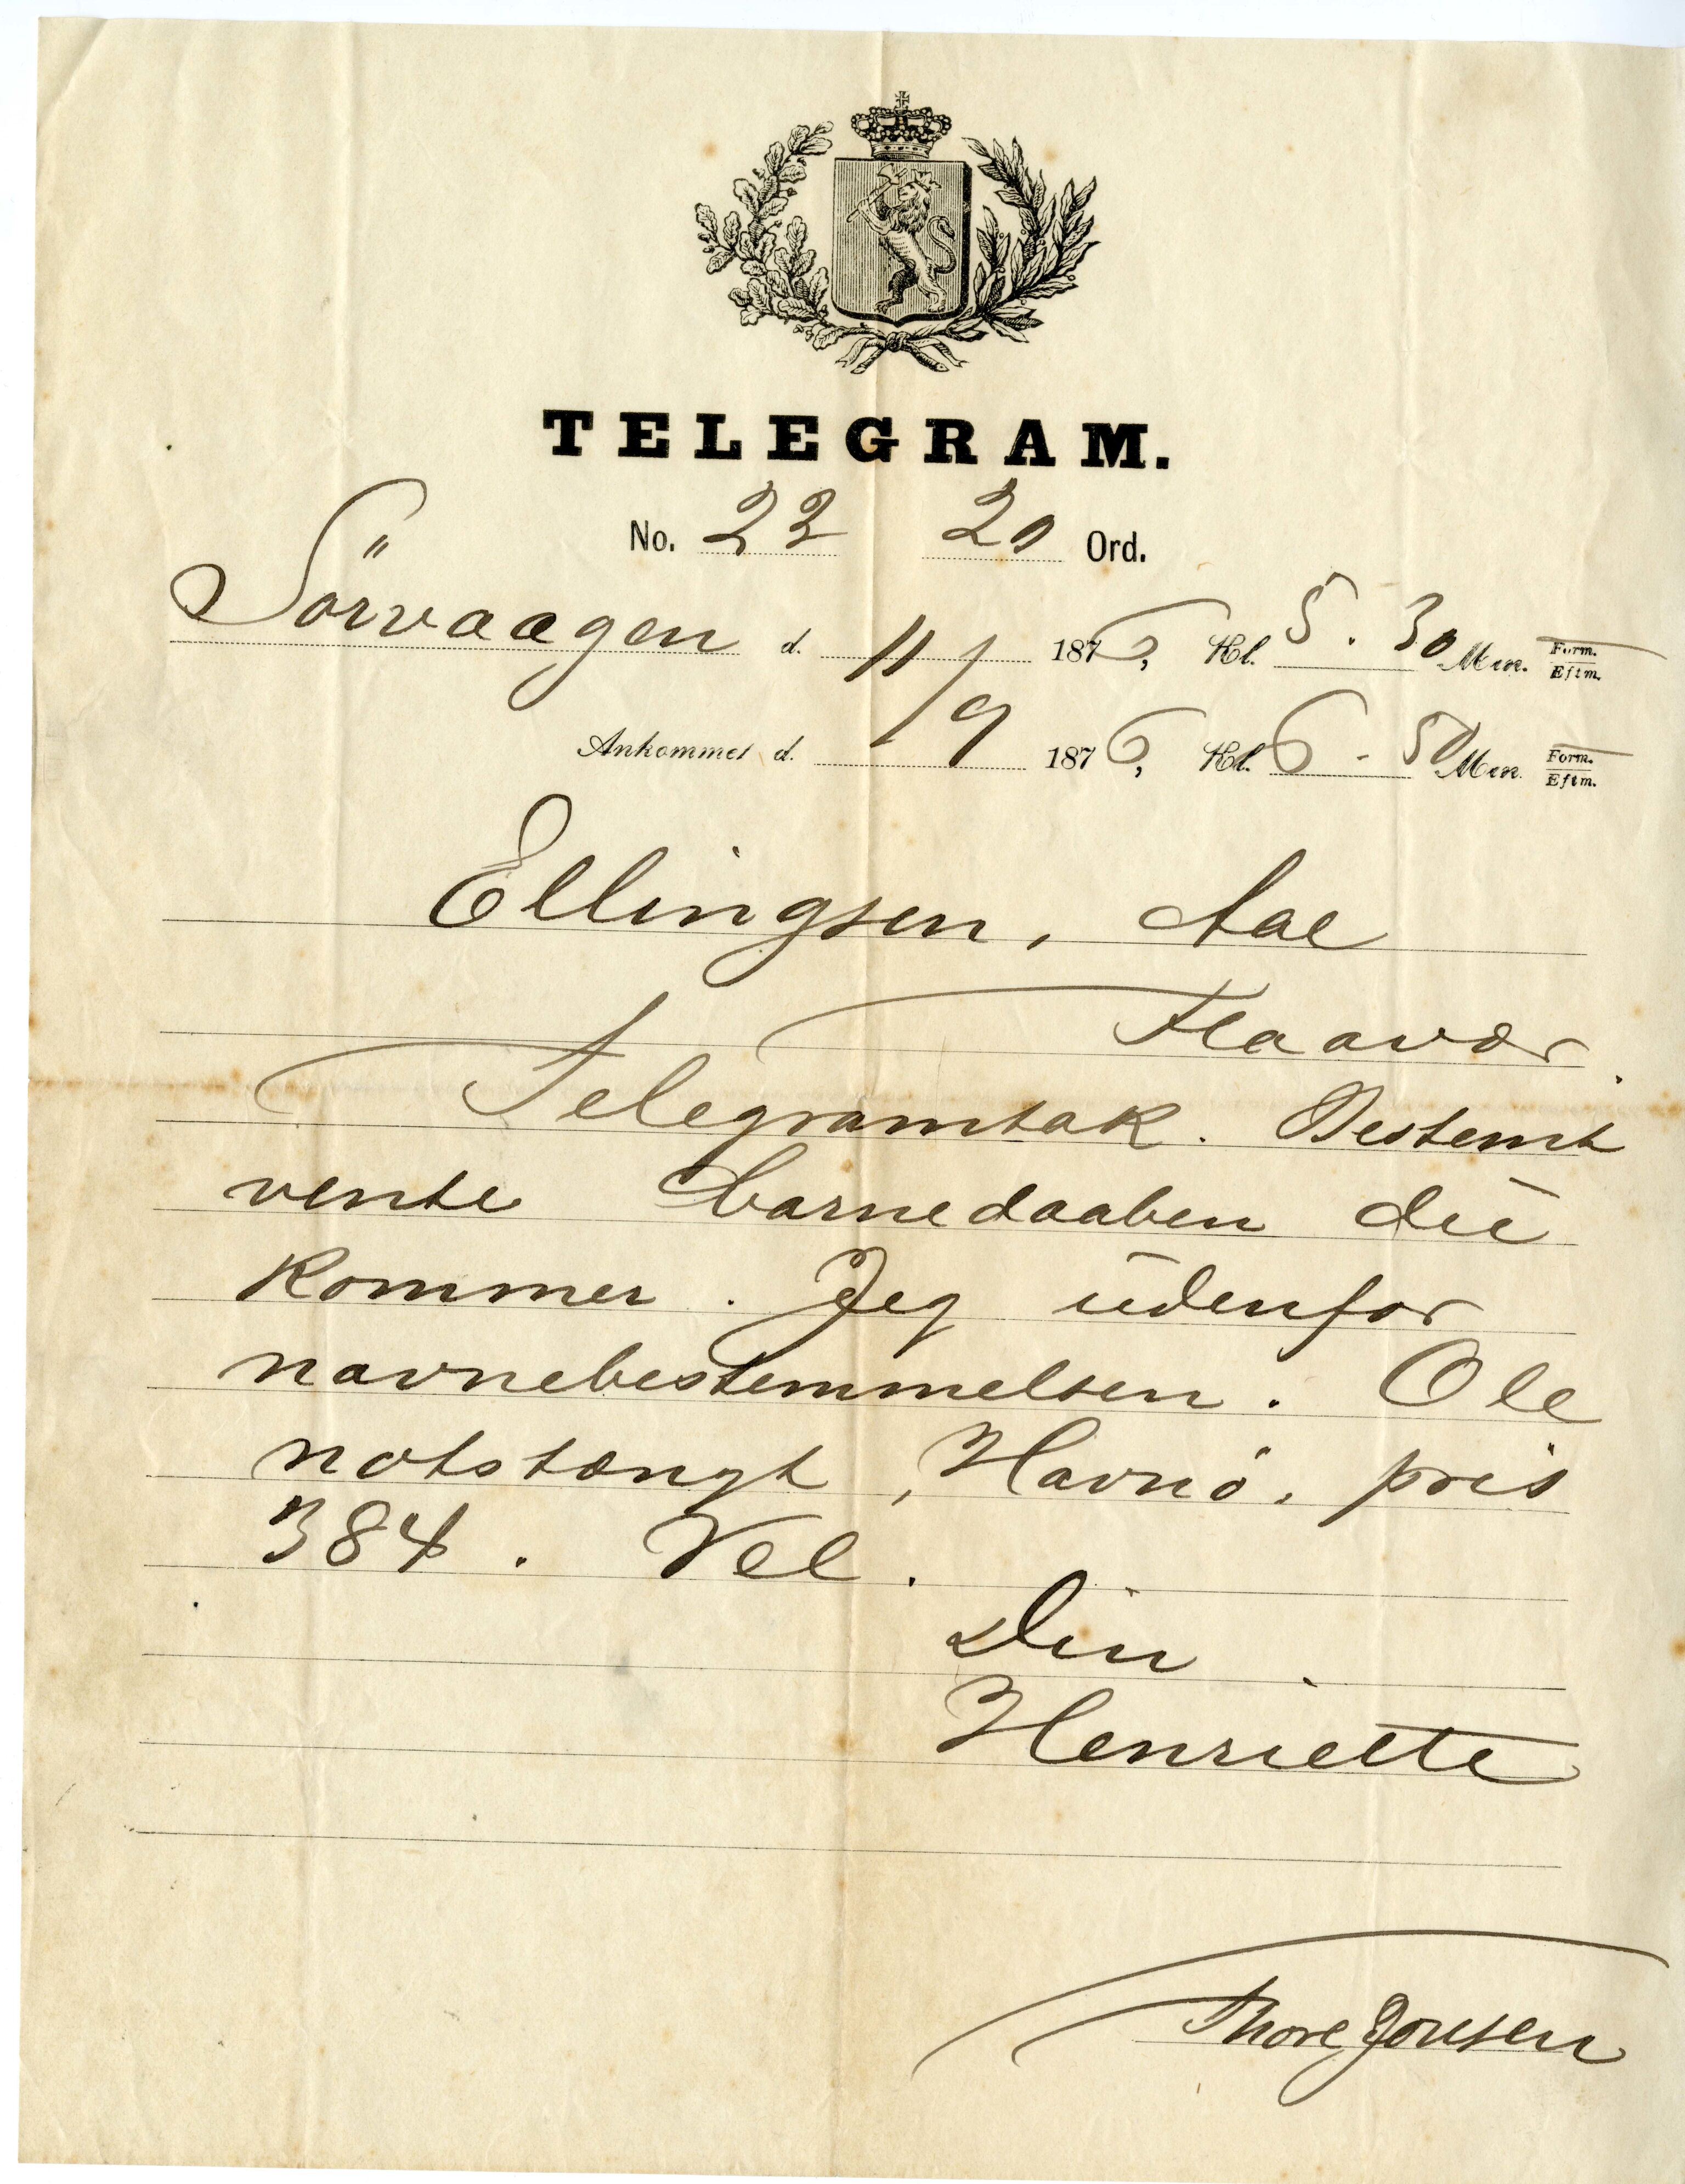 TELEGRAM.
No. 22 20 Ord.
Sörvaagen d. 11/9 1876, Kl. 5.30 Min. Form. Eftm.
Ankommet d. 1876, Kl. 6-50 Min. Form. Eftm.
Ellingsen, Aae
Flaavær.
Telegramtak. Bestemt
vente barnedaaben dū
kommer. Jeg ūdenfor
navnebestemmelsen. Ole
notstængt, Havnö. pris
384. Vel.
Din
Henriette
Thore Jonsen